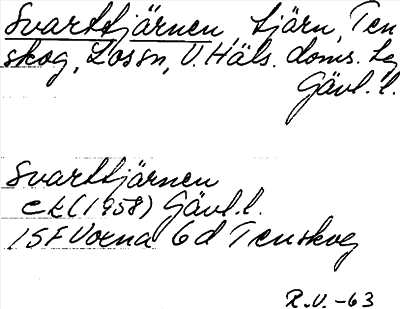 Svarttjärnen, tjärn, Ten
skog, Lossn, V. Häls. doms. Lg
Gävl. l.
Svarttjärnen
ek (1958) Gävl. l.
15F Voxna 6d Tenskog
R.V. -63